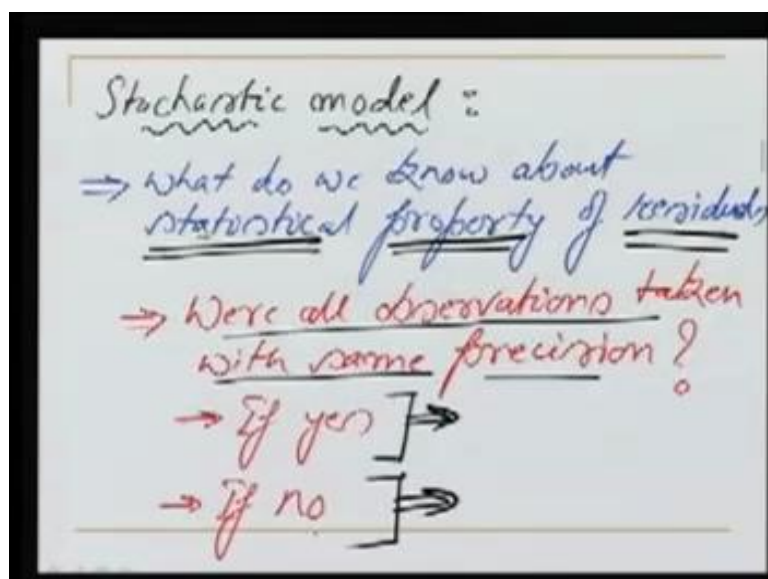 Stochastic model :
⇒ what do we know about
statistical property of residuals
⇒ Were all observations taken
with same precision ?
→ If yes ] ⇒
→ If no ] ⇒